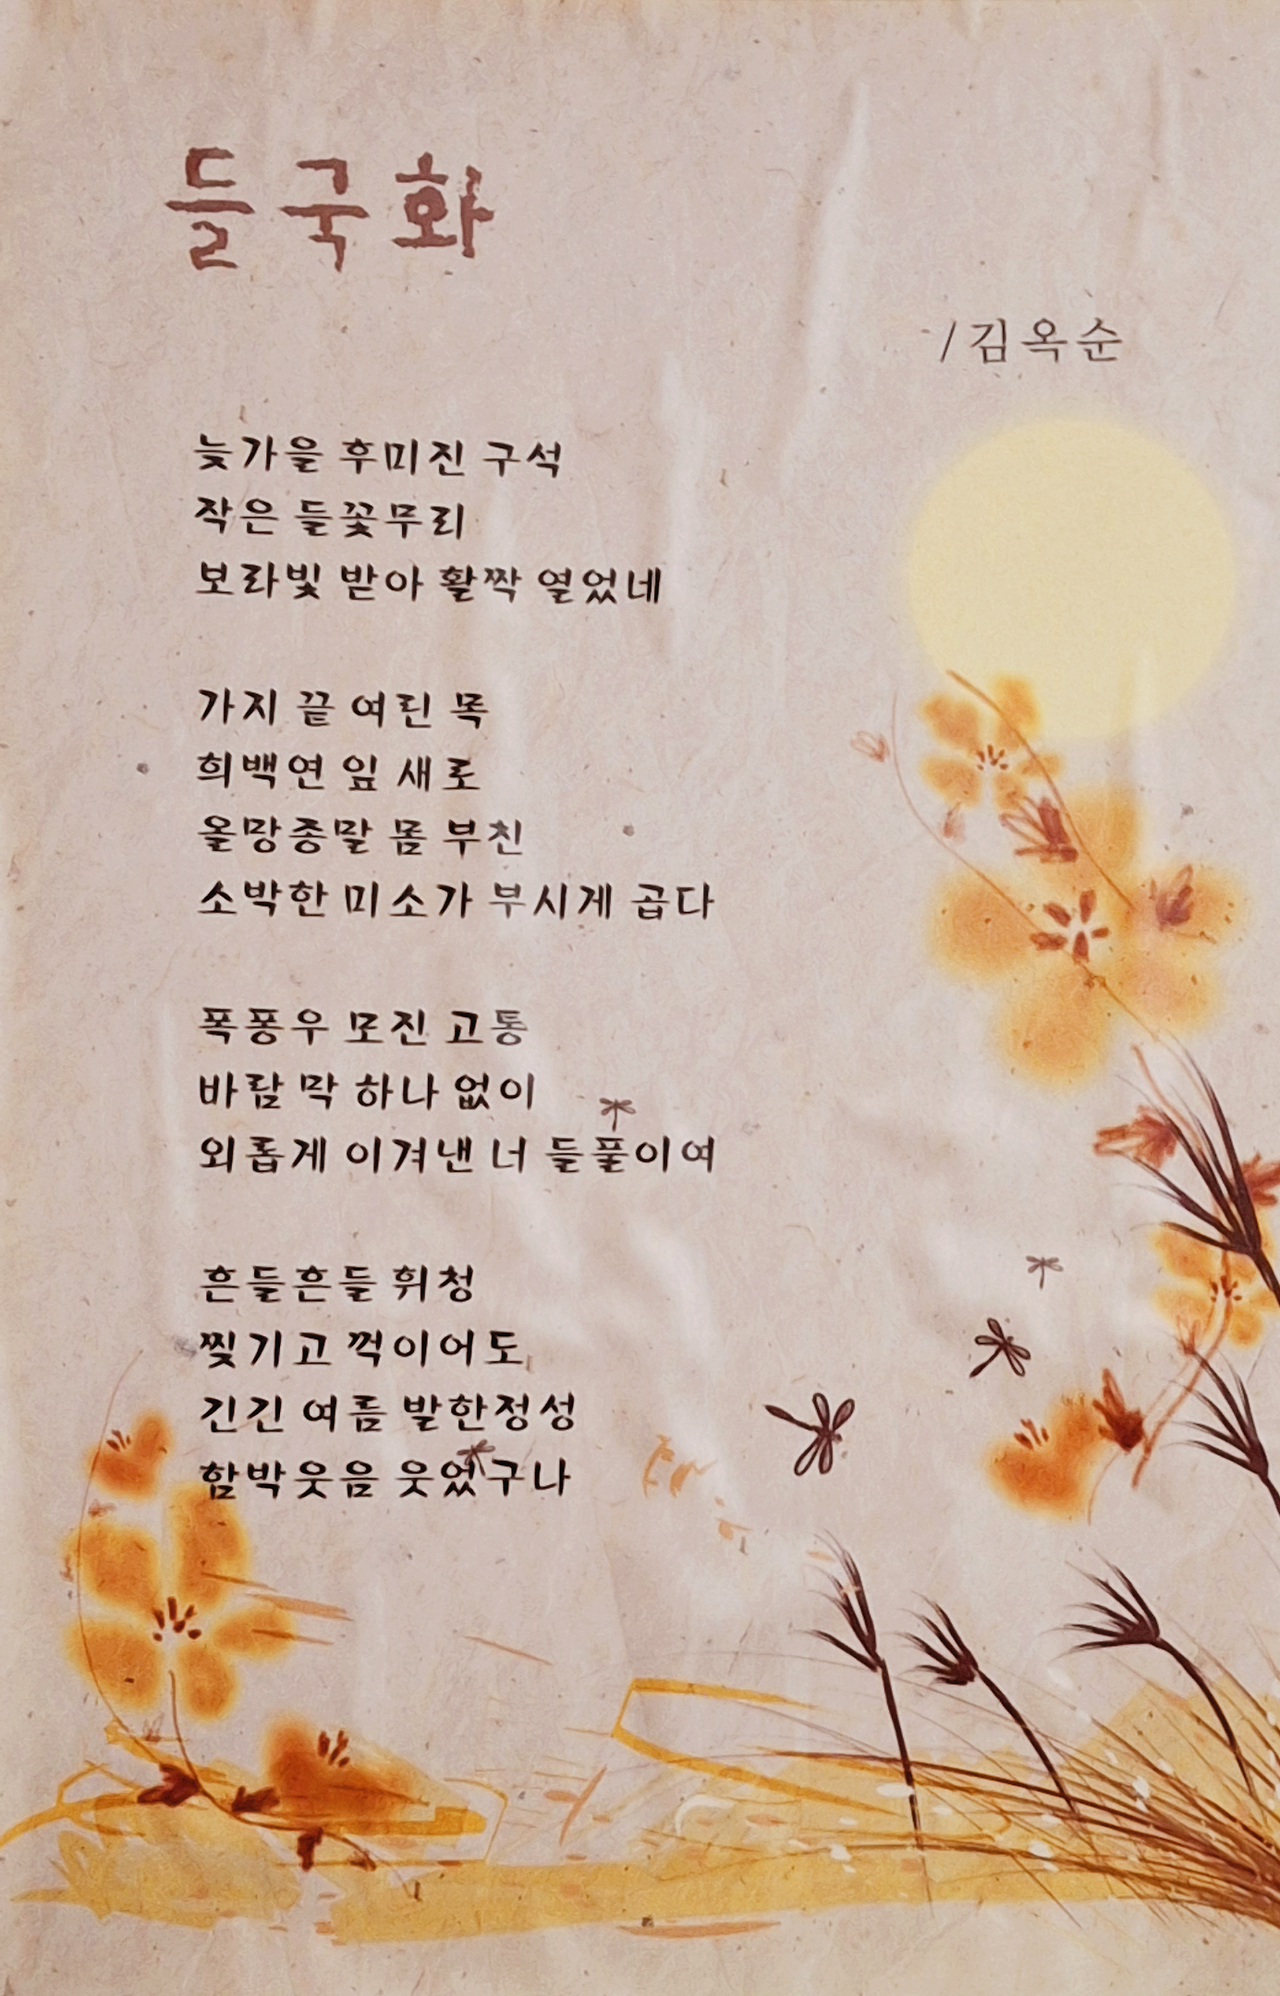 들국화
/김옥순
늦가을 후미진 구석
작은 들꽃무리
보라빛 받아 활짝 열었네
가지 끝 여린 목
희백연 잎 새로
올망종말 몸 부친
소박한 미소가 부시게 곱다
폭퐁우 모진 고통
바람 막 하나 없이
외롭게 이겨낸 너 들풀이여
흔들흔들 휘청
찢기고 꺽이어도
긴긴 여름 발한정성
함박웃음 웃었구나